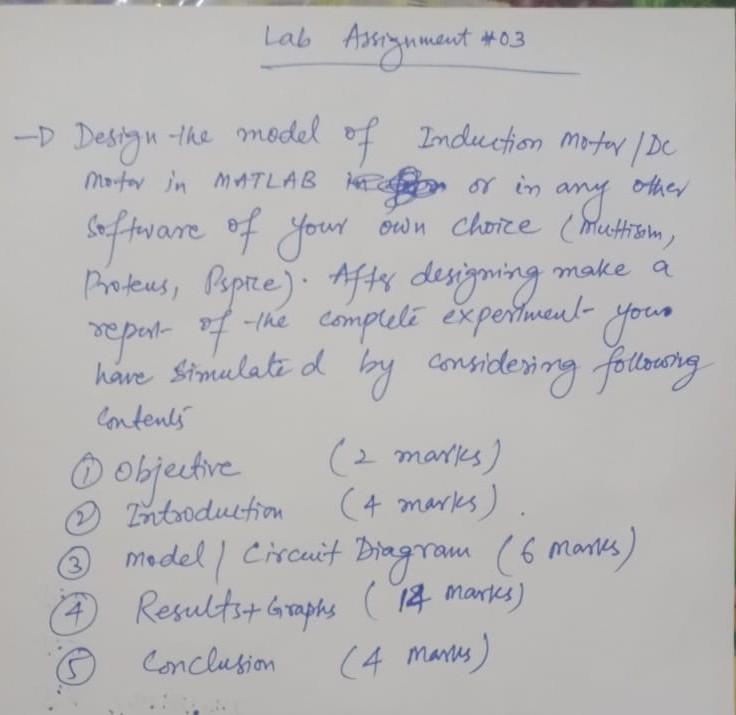 Lab Assignment #03
→ Design the model of Induction Motor/DC
Motor in MATLAB or in any other
Software of your own choice (Multisim,
Proteus, Pspice). After designing make a
report of the complete experiment you
have simulated by considering following
Contents
① Objective (2 marks)
② Introduction (4 marks).
③ Model / Circuit Diagram (6 marks)
④ Results + Graphs (14 marks)
⑤ Conclusion (4 marks)